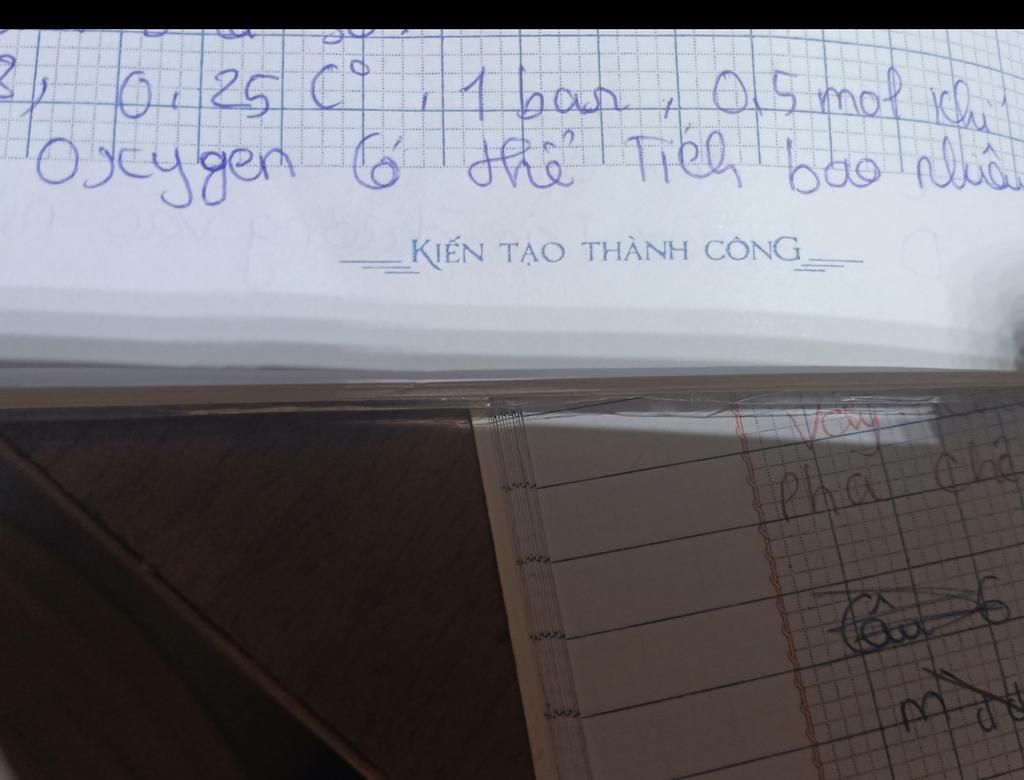 3, 0, 25 C°, 1 bar, 0,5 mol khí
Oxygen có thể Tích bao nhiêu
KIẾN TẠO THÀNH CÔNG
Vậy
pha chế
Câu 6
m